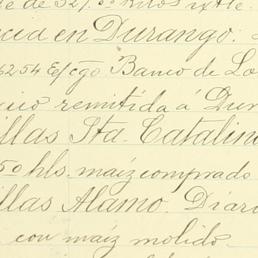 de 527.50 kilos ixtle.
cia en Durango.
6254 E/cgo Banco de Lo
cio remitida á Dur
illas Sta. Catalina
50 hls. maíz comprado
illas Alamo. Diar
con maíz molido